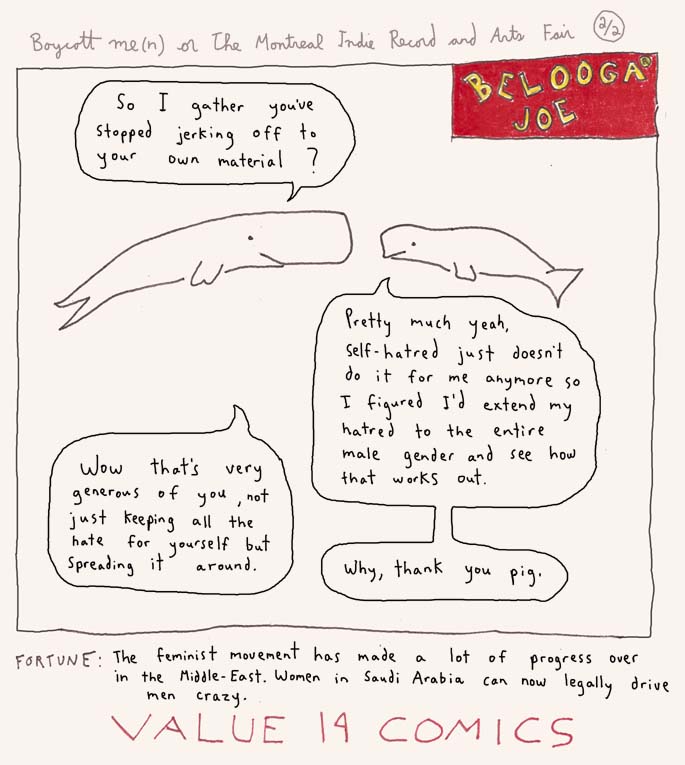 Boycott me(n) or The Montreal Indie Record and Arts Fair 2/2
BELOOGA
JOE
So I gather you've
stopped jerking off to
your own material ?
Pretty much yeah,
self-hatred just doesn't
do it for me anymore so
I figured I'd extend my
hatred to the entire
male gender and see how
that works out.
Wow that's very
generous of you, not
just keeping all the
hate for yourself but
spreading it around.
Why, thank you pig.
FORTUNE: The feminist movement has made a lot of progress over
in the Middle-East. Women in Saudi Arabia can now legally drive
men crazy.
VALUE 14 COMICS